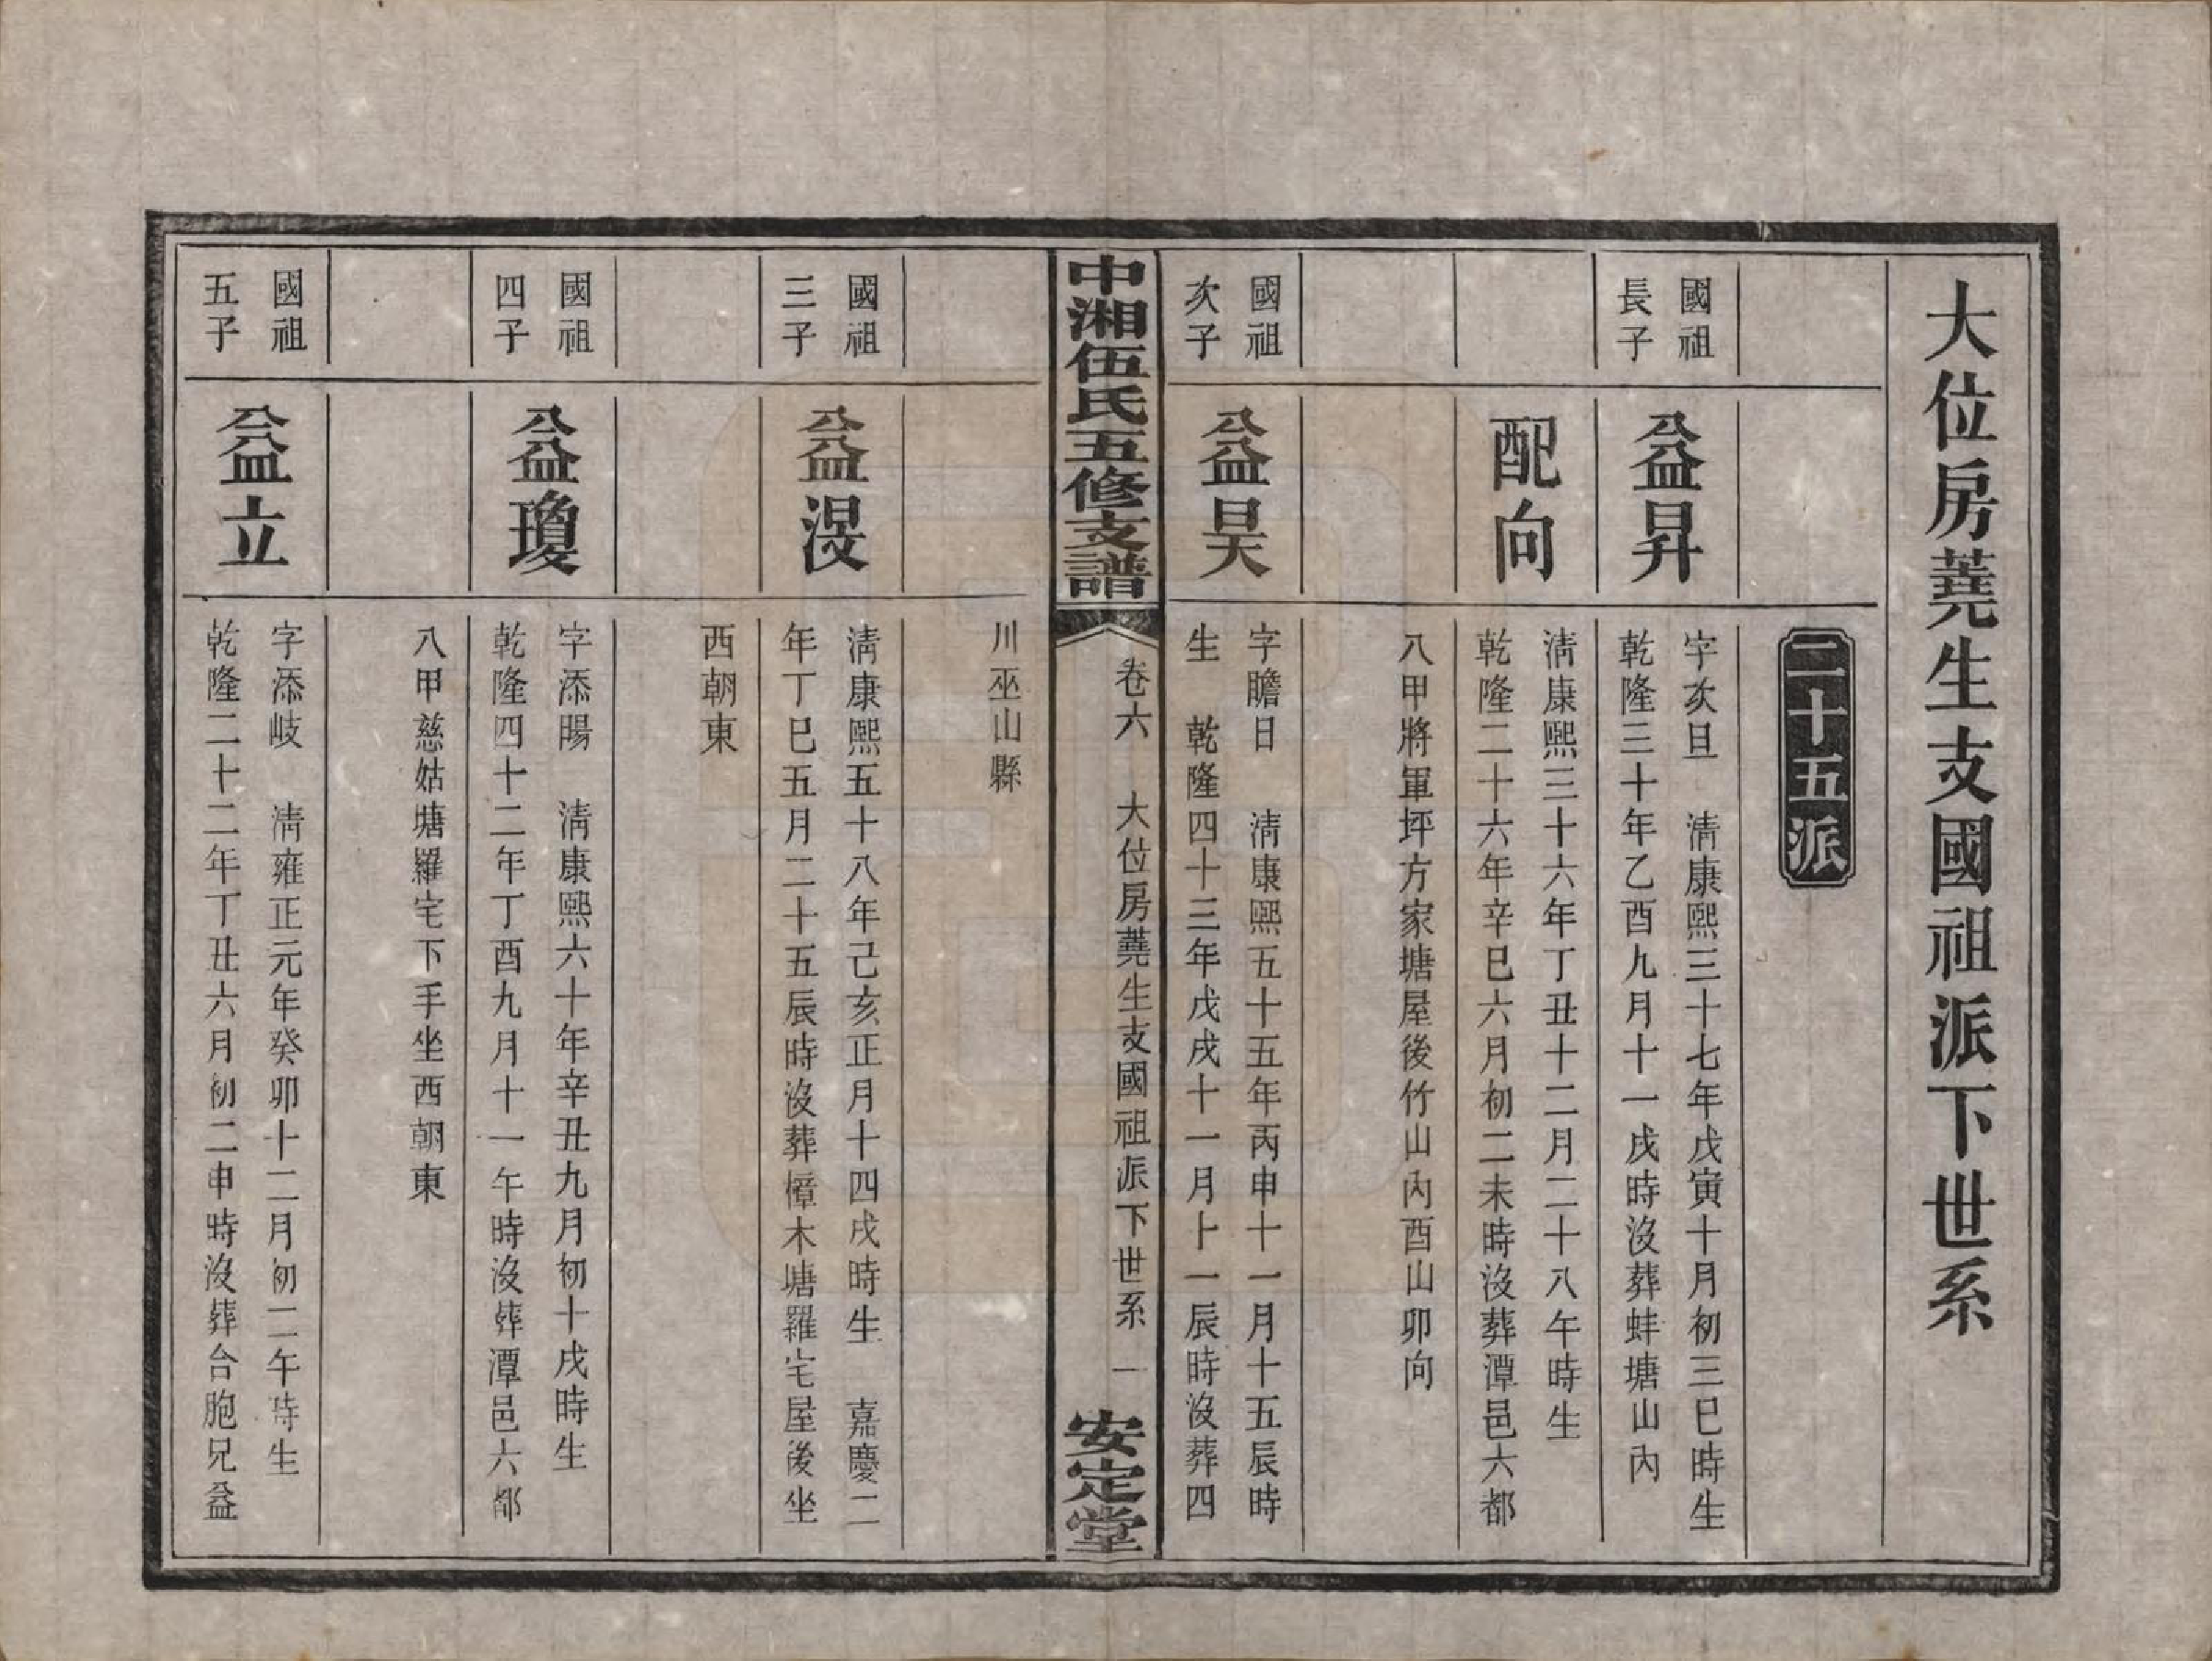 大位房蕘生支國祖派下世系
二十五派
國祖
長子
益昇
字亥旦　清康熙三十七年戊寅十月初三巳時生
乾隆三十年乙酉九月十一戌時沒葬蚌塘山內
配向
清康熙三十六年丁丑十二月二十八午時生
乾隆二十六年辛巳六月初二未時沒葬潭邑六都
八甲將軍坪方家塘屋後竹山內酉山卯向
國祖
次子
益昊
字瞻日　清康熙五十五年丙申十一月十五辰時
生　乾隆四十三年戊戌十一月十一辰時沒葬四
中湘伍氏五修支譜
卷六　大位房蕘生支國祖派下世系　一
安定堂
川巫山縣
國祖
三子
益
清康熙五十八年己亥正月十四戌時生　嘉慶二
年丁巳五月二十五辰時沒葬樟木塘羅宅屋後坐
西朝東
國祖
四子
益瓊
字添暘　清康熙六十年辛丑九月初十戌時生
乾隆四十二年丁酉九月十一午時沒葬潭邑六都
八甲慈姑塘羅宅下手坐西朝東
國祖
五子
益立
字添岐　清雍正元年癸卯十二月初二午時生
乾隆二十二年丁丑六月初二申時沒葬台胞兄益